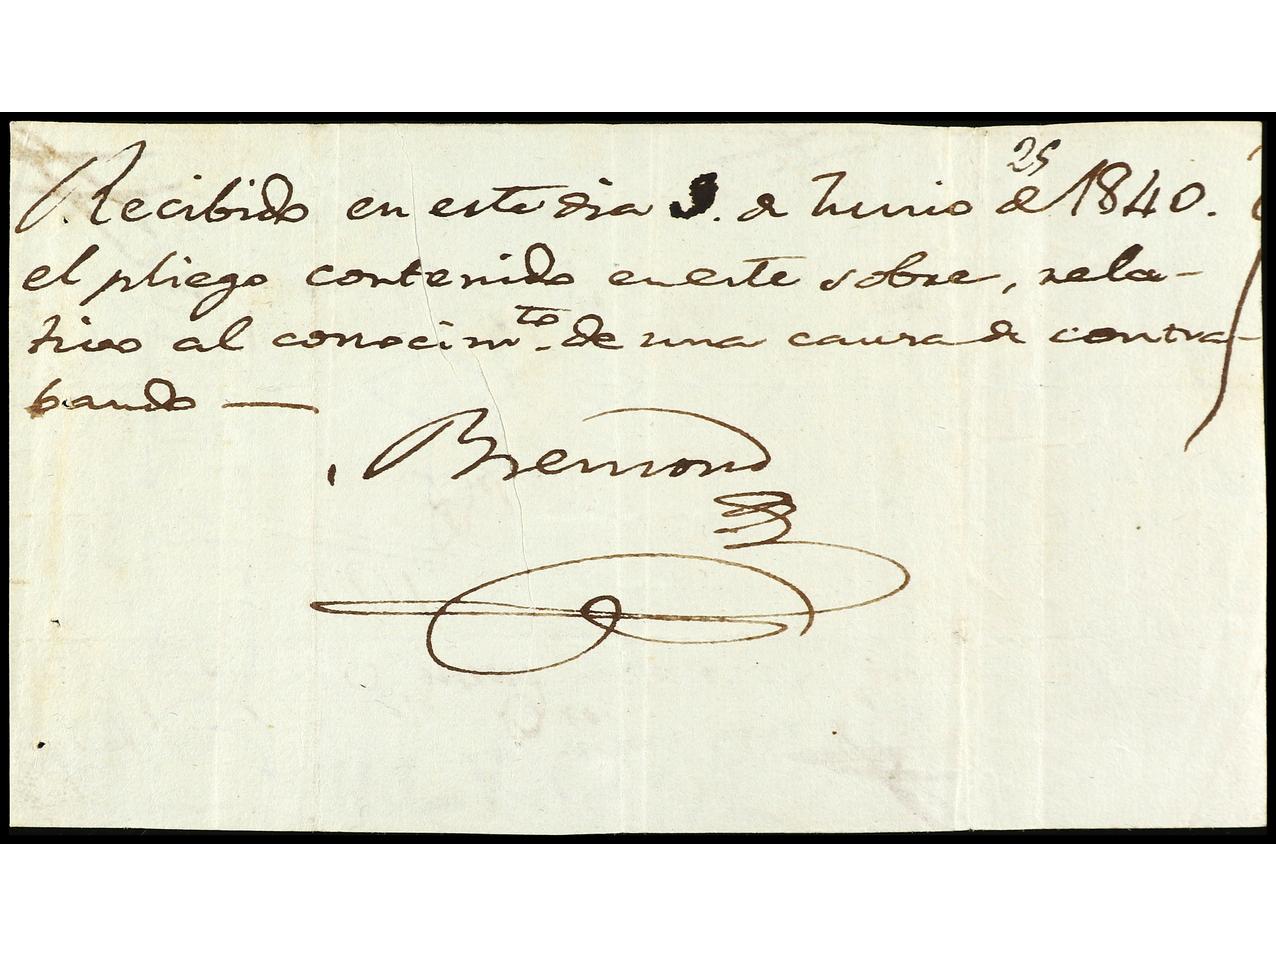 Recibido en este dia 9. de Junio de 1840.
25
el pliego contenido en este sobre, rela-
tivo al conocimto. de una causa de contra-
bando —
Bremond